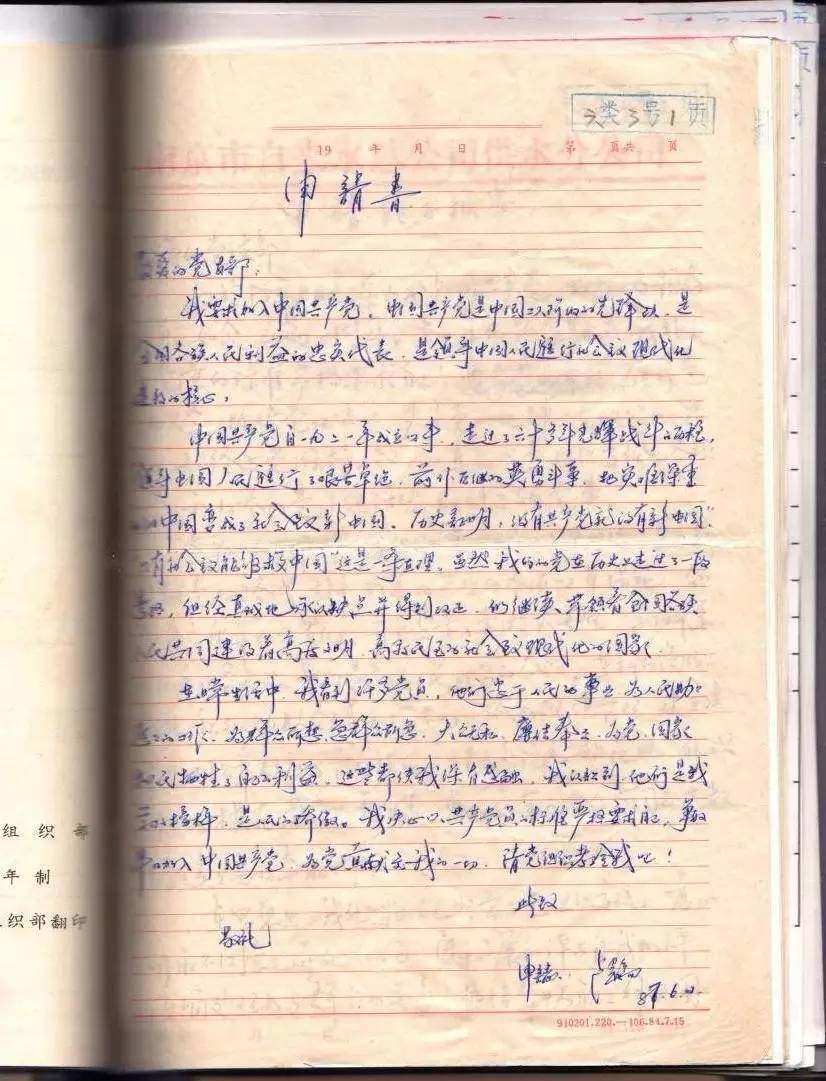 六类3号1页
19 年 月 日 第 页共 页
申请书
的党支部:
我要求加入中国共产党。中国共产党是中国工人阶级的先锋队,是
全国各族人民利益的忠实代表,是领导中国人民进行社会主义现代化
建设的核心。
中国共产党自一九二一年成立以来,走过了六十多年光辉战斗的历程,
领导中国人民进行了艰苦卓绝、前仆后继的英勇斗争,把灾难深重
的中国变成了社会主义新中国。历史证明,"没有共产党就没有新中国",
只有社会主义能够救中国"这是一条真理。虽然我们的党在历史上走过了一段
弯路,但经真诚地承认缺点并得到改正,仍继续率领着全国各族
人民共同建设着高度文明、高度民主的社会主义现代化的国家
在日常生活中,我看到许多党员,他们忠于人民的事业,为人民勤
工作,为群众所想,急群众所急,大公无私,廉洁奉公,为党、国家
和人民牺牲了自己的利益,这些都使我深有感触,我认识到他们是我
的榜样,是人民的骄傲。我决心以共产党员的标准严格要求自己,争取
早日加入中国共产党,为党贡献出我的一切,请党组织考验我吧!
此致
敬礼
申请人
6.
910201.220.—106.84.7.15
组织部
年制
组织部翻印